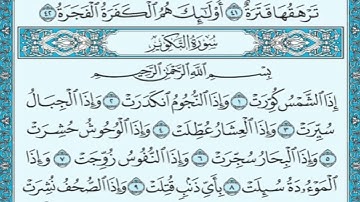 تَرْهَقُهَا قَتَرَةٌ ٤١ أُولَٰئِكَ هُمُ الْكَفَرَةُ الْفَجَرَةُ ٤٢
سُورَةُ التَّكْوِيرِ
بِسْمِ اللَّهِ الرَّحْمَٰنِ الرَّحِيمِ
إِذَا الشَّمْسُ كُوِّرَتْ ١ وَإِذَا النُّجُومُ انكَدَرَتْ ٢ وَإِذَا الْجِبَالُ
سُيِّرَتْ ٣ وَإِذَا الْعِشَارُ عُطِّلَتْ ٤ وَإِذَا الْوُحُوشُ حُشِرَتْ
٥ وَإِذَا الْبِحَارُ سُجِّرَتْ ٦ وَإِذَا النُّفُوسُ زُوِّجَتْ ٧ وَإِذَا
الْمَوْءُۥدَةُ سُئِلَتْ ٨ بِأَيِّ ذَنبٍ قُتِلَتْ ٩ وَإِذَا الصُّحُفُ نُشِرَتْ